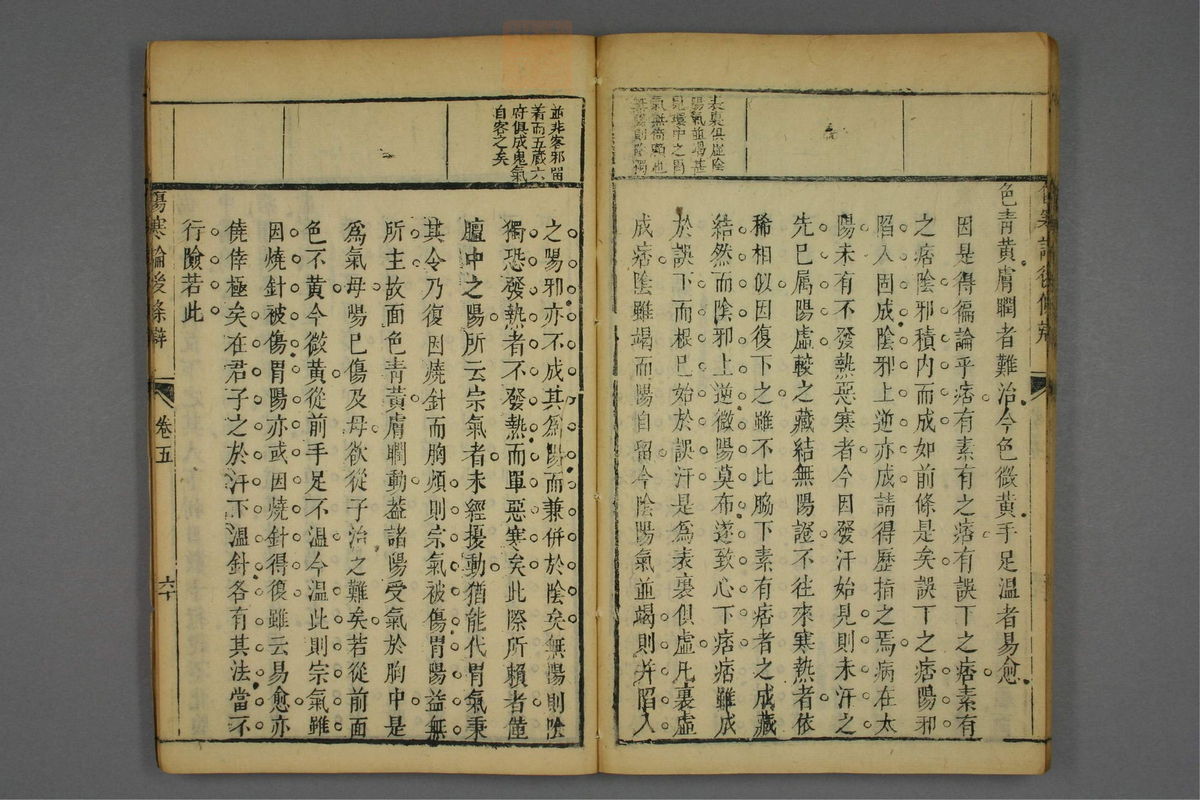 表裏俱虛陰
陽氣並竭甚
見環中之間
氣無倚賴也
色青黃膚瞤者難治今色微黃手足溫者易愈
因是得徧論乎痞有素有之痞有誤下之痞素有
之痞陰邪積內而成如前條是矣誤下之痞陽邪
陷入固成陰邪上逆亦成請得歷指之焉病在太
陽未有不發熱惡寒者今因發汗始見則未汗之
先已屬陽虛較之藏結無陽證不往來寒熱者依
稀相似因復下之雖不比脇下素有痞者之成藏
結然而陰邪上逆微陽莫布遂致心下痞痞雖成
於誤下而根已始於誤汗是爲表裏俱虛凡裏虛
成痞陰雖竭而陽自留今陰陽氣並竭則并陷入
並非客邪留
著而五藏六
府俱成鬼氣
自客之矣
之陽邪亦不成其爲陽而兼併於陰矣無陽則陰
獨恐發熱者不發熱而單惡寒矣此際所賴者僅
膻中之陽所云宗氣者未經擾動猶能代胃氣秉
其令乃復因燒針而胸煩則宗氣被傷胃陽益無
所主故面色青黃膚瞤動葢諸陽受氣於胸中是
爲氣母陽已傷及母欲從子治之難矣若從前面
色不黃今微黃從前手足不溫今溫此則宗氣雖
因燒針被傷胃陽亦或因燒針得復雖云易愈亦
僥倖極矣在君子之於汗下溫針各有其法當不
行險若此
傷寒論後條辯
卷五
六十